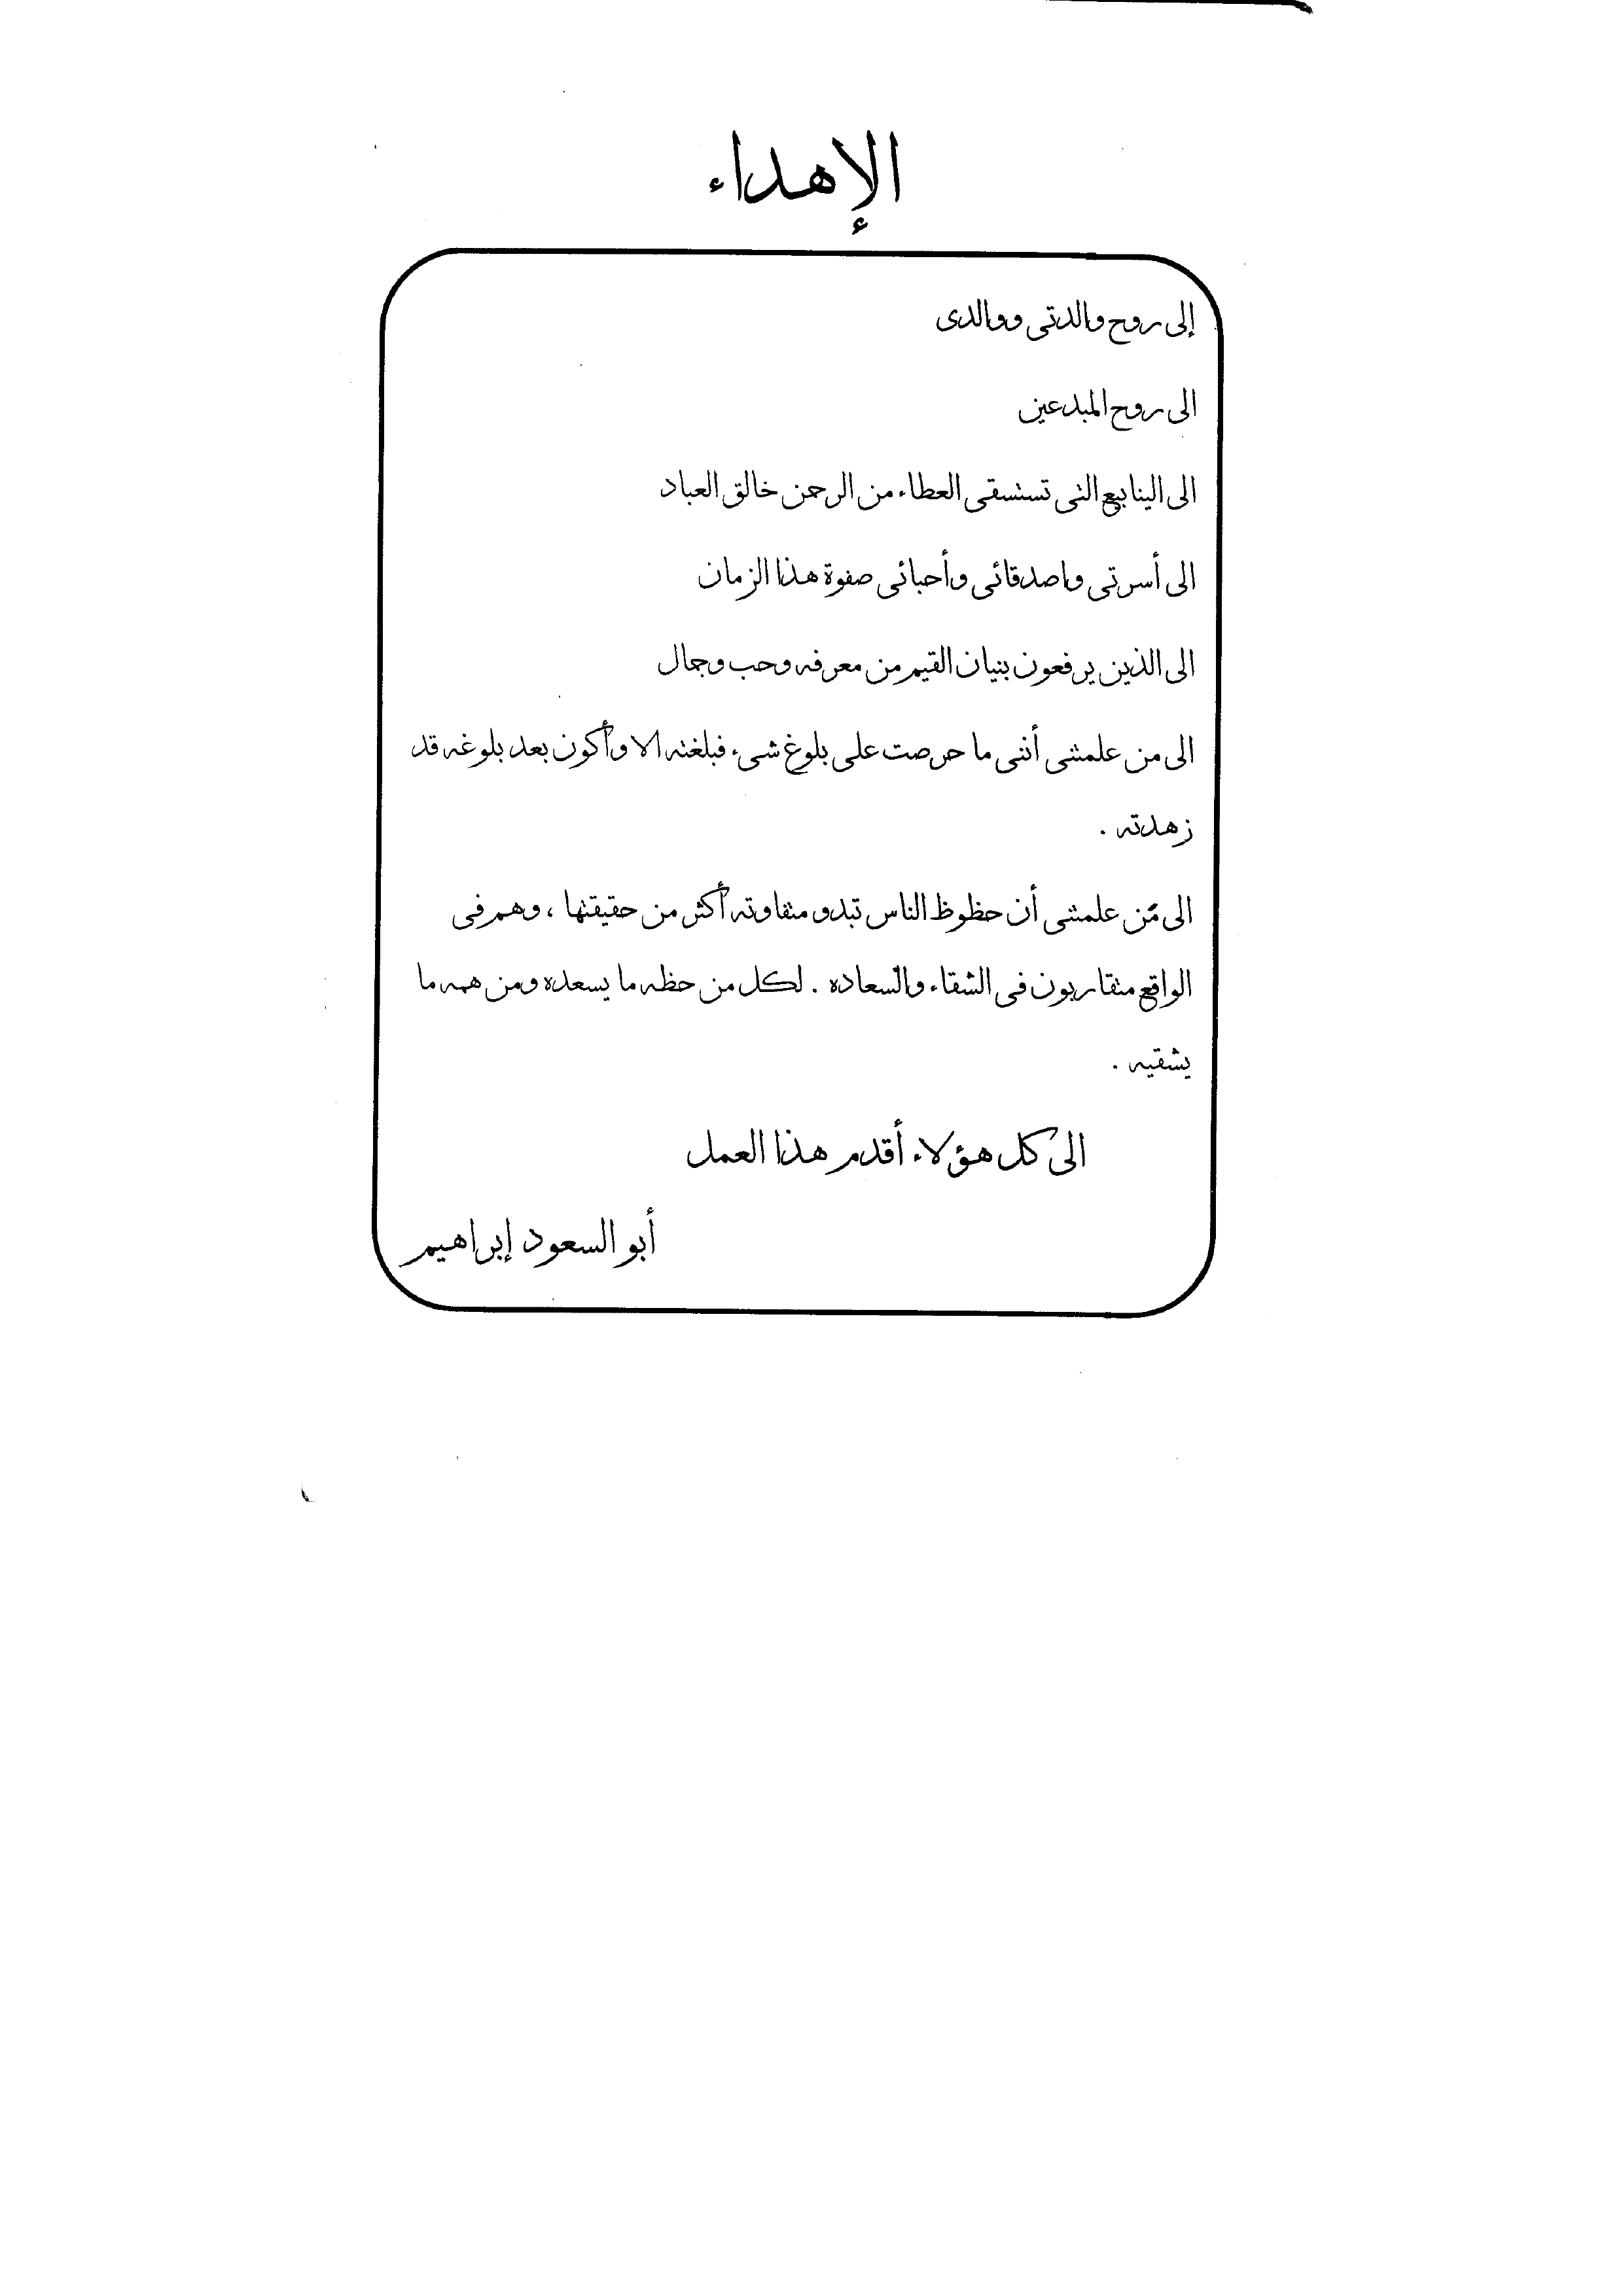 الإهداء
إلى روح والدتى ووالدى
الى روح المبدعين
الى الينابيع التى تستسقى العطاء من الرحمن خالق العباد
الى أسرتى واصدقائى وأحبائى صفوة هذا الزمان
الى الذين يرفعون بنيان القيم من معرفه وحب وجمال
الى من علمتنى أننى ما حرصت على بلوغ شىء فبلغته الا وأكون بعد بلوغه قد
زهدته .
الى مَن علمتنى أن حظوظ الناس تبدو متفاوته أكثر من حقيقتها ، وهم فى
الواقع متقاربون فى الشقاء والسعاده . لكل من حظه ما يسعده ومن همه ما
يشقيه .
الى كل هؤلاء أقدم هذا العمل
أبو السعود إبراهيم